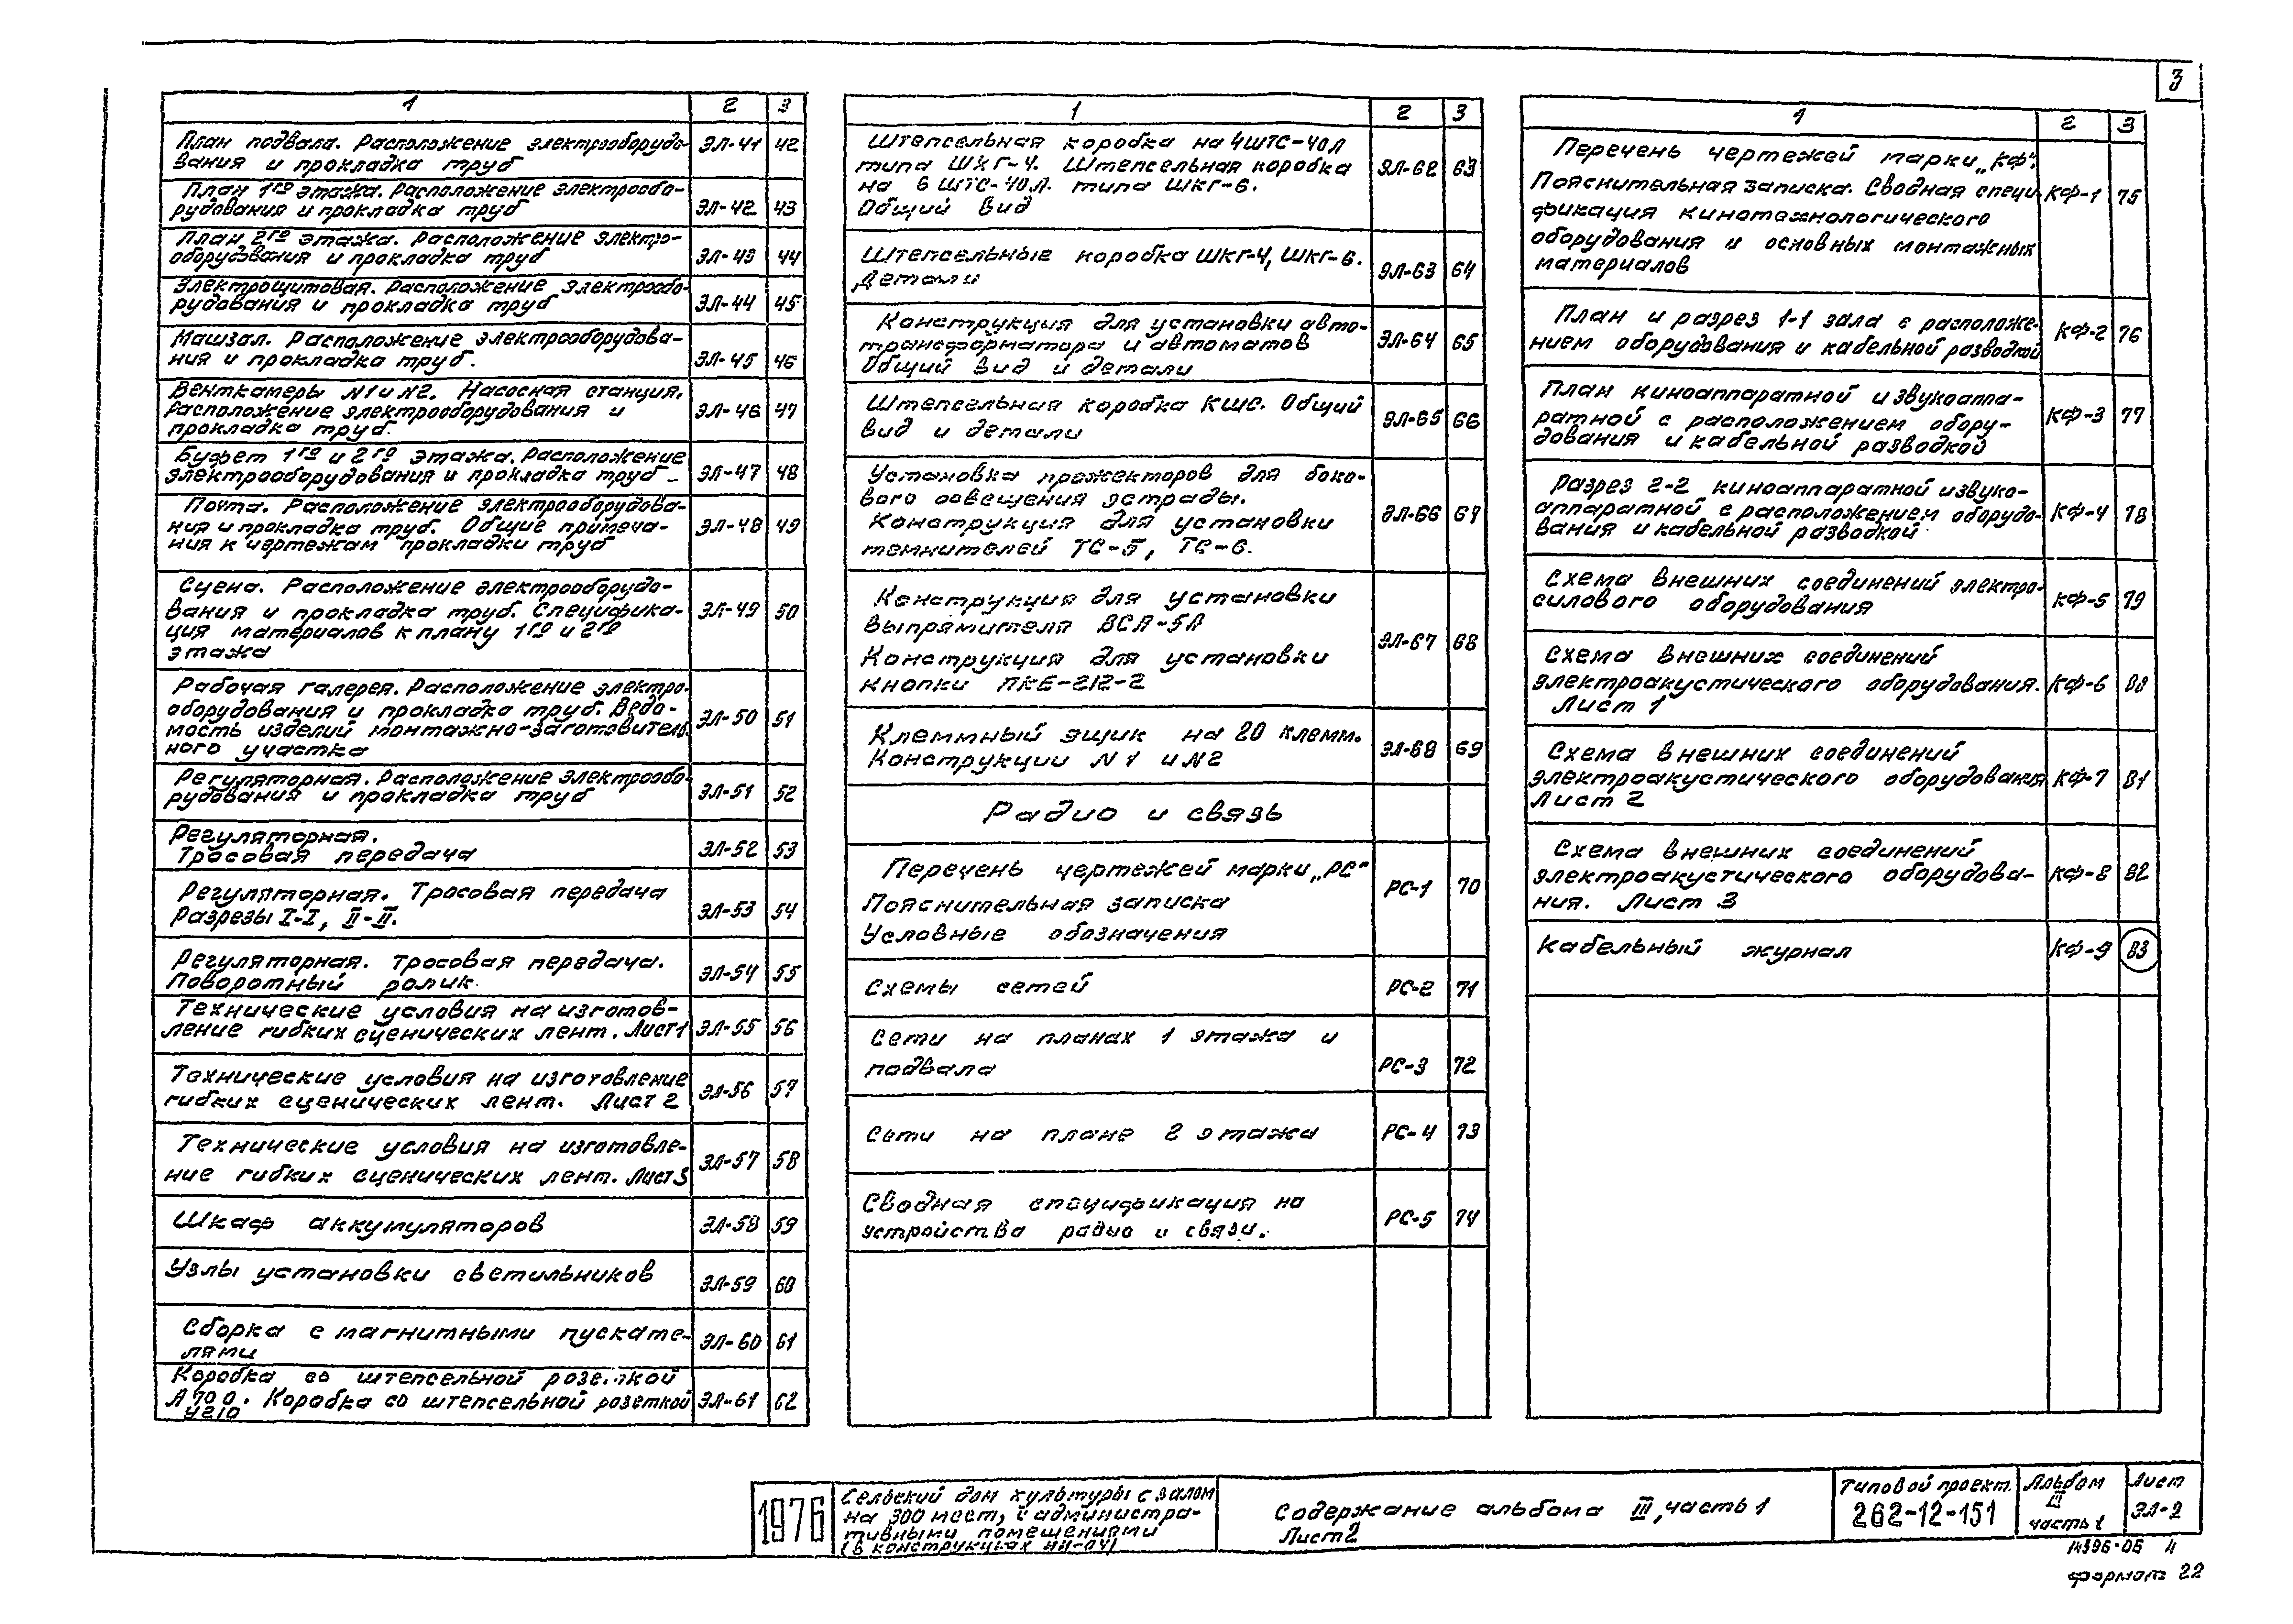 3
1 2 3
План подвала. Расположение электрооборудо-
вания и прокладка труб ЭЛ-41 42
План 1го этажа. Расположение электрообо-
рудования и прокладка труб ЭЛ-42 43
План 2го этажа. Расположение электро-
оборудования и прокладка труб ЭЛ-43 44
Электрощитовая. Расположение электрообо-
рудования и прокладка труб ЭЛ-44 45
Машзал. Расположение электрооборудова-
ния и прокладка труб. ЭЛ-45 46
Венткамеры N1 и N2. Насосная станция.
Расположение электрооборудования и ЭЛ-46 47
прокладка труб.
Буфет 1го и 2го этажа. Расположение
электрооборудования и прокладка труб ЭЛ-47 48
Почта. Расположение электрооборудова-
ния и прокладка труб. Общие примеча- ЭЛ-48 49
ния к чертежам прокладки труб
Сцена. Расположение электрооборудо-
вания и прокладка труб. Специфика- ЭЛ-49 50
ция материалов к плану 1го и 2го
этажа
Рабочая галерея. Расположение электро-
оборудования и прокладка труб. Ведо- ЭЛ-50 51
мость изделий монтажно-заготовитель-
ного участка
Регуляторная. Расположение электрообо-
рудования и прокладка труб ЭЛ-51 52
Регуляторная.
Тросовая передача ЭЛ-52 53
Регуляторная. Тросовая передача
Разрезы I-I, II-II. ЭЛ-53 54
Регуляторная. Тросовая передача.
Поворотный ролик. ЭЛ-54 55
Технические условия на изготов-
ление гибких сценических лент. Лист 1 ЭЛ-55 56
Технические условия на изготовление
гибких сценических лент. Лист 2 ЭЛ-56 57
Технические условия на изготовле-
ние гибких сценических лент. Лист 3 ЭЛ-57 58
Шкаф аккумуляторов ЭЛ-58 59
Узлы установки светильников ЭЛ-59 60
Сборка с магнитными пускате-
лями ЭЛ-60 61
Коробка со штепсельной розеткой
А 700. Коробка со штепсельной розеткой ЭЛ-61 62
У210
1 2 3
Штепсельная коробка на 4ШТС-40Л
типа ШКГ-4. Штепсельная коробка ЭЛ-62 63
на 6 ШТС-40Л. типа ШКГ-6.
Общий вид
Штепсельные коробка ШКГ-4, ШКГ-6.
Детали ЭЛ-63 64
Конструкция для установки авто-
трансформатора и автоматов ЭЛ-64 65
Общий вид и детали
Штепсельная коробка КШС. Общий
вид и детали ЭЛ-65 66
Установка прожекторов для боко-
вого освещения эстрады.
Конструкция для установки ЭЛ-66 67
темнителей ТС-5, ТС-6.
Конструкция для установки
выпрямителя ВСА-5А
Конструкция для установки ЭЛ-67 68
кнопки ПКЕ-212-2
Клеммный ящик на 20 клемм.
Конструкции N 1 и N2 ЭЛ-68 69
Радио и связь
Перечень чертежей марки „РС"
Пояснительная записка РС-1 70
Условные обозначения
Схемы сетей РС-2 71
Сети на планах 1 этажа и
подвала РС-3 72
Сети на плане 2 этажа РС-4 73
Сводная спецификация на
устройства радио и связи. РС-5 74
1 2 3
Перечень чертежей марки „КФ".
Пояснительная записка. Сводная специ- КФ-1 75
фикация кинотехнологического
оборудования и основных монтажных
материалов
План и разрез 1-1 зала с расположе-
нием оборудования и кабельной разводкой КФ-2 76
План киноаппаратной и звукоаппа-
ратной с расположением обору- КФ-3 77
дования и кабельной разводкой
Разрез 2-2 киноаппаратной и звуко-
аппаратной с расположением оборудо- КФ-4 78
вания и кабельной разводкой
Схема внешних соединений электро-
силового оборудования КФ-5 79
Схема внешних соединений
электроакустического оборудования. КФ-6 80
Лист 1
Схема внешних соединений
электроакустического оборудования КФ-7 81
Лист 2
Схема внешних соединений
электроакустического оборудова- КФ-8 82
ния. Лист 3
Кабельный журнал КФ-9 83
1976
Сельский дом культуры с залом
на 300 мест, с администра-
тивными помещениями
(в конструкциях ИИ-04)
Содержание альбома III, часть 1
Лист 2
Типовой проект.
262-12-151
Альбом
III
часть 1
Лист
ЭЛ-2
14396-06 4
формат 22